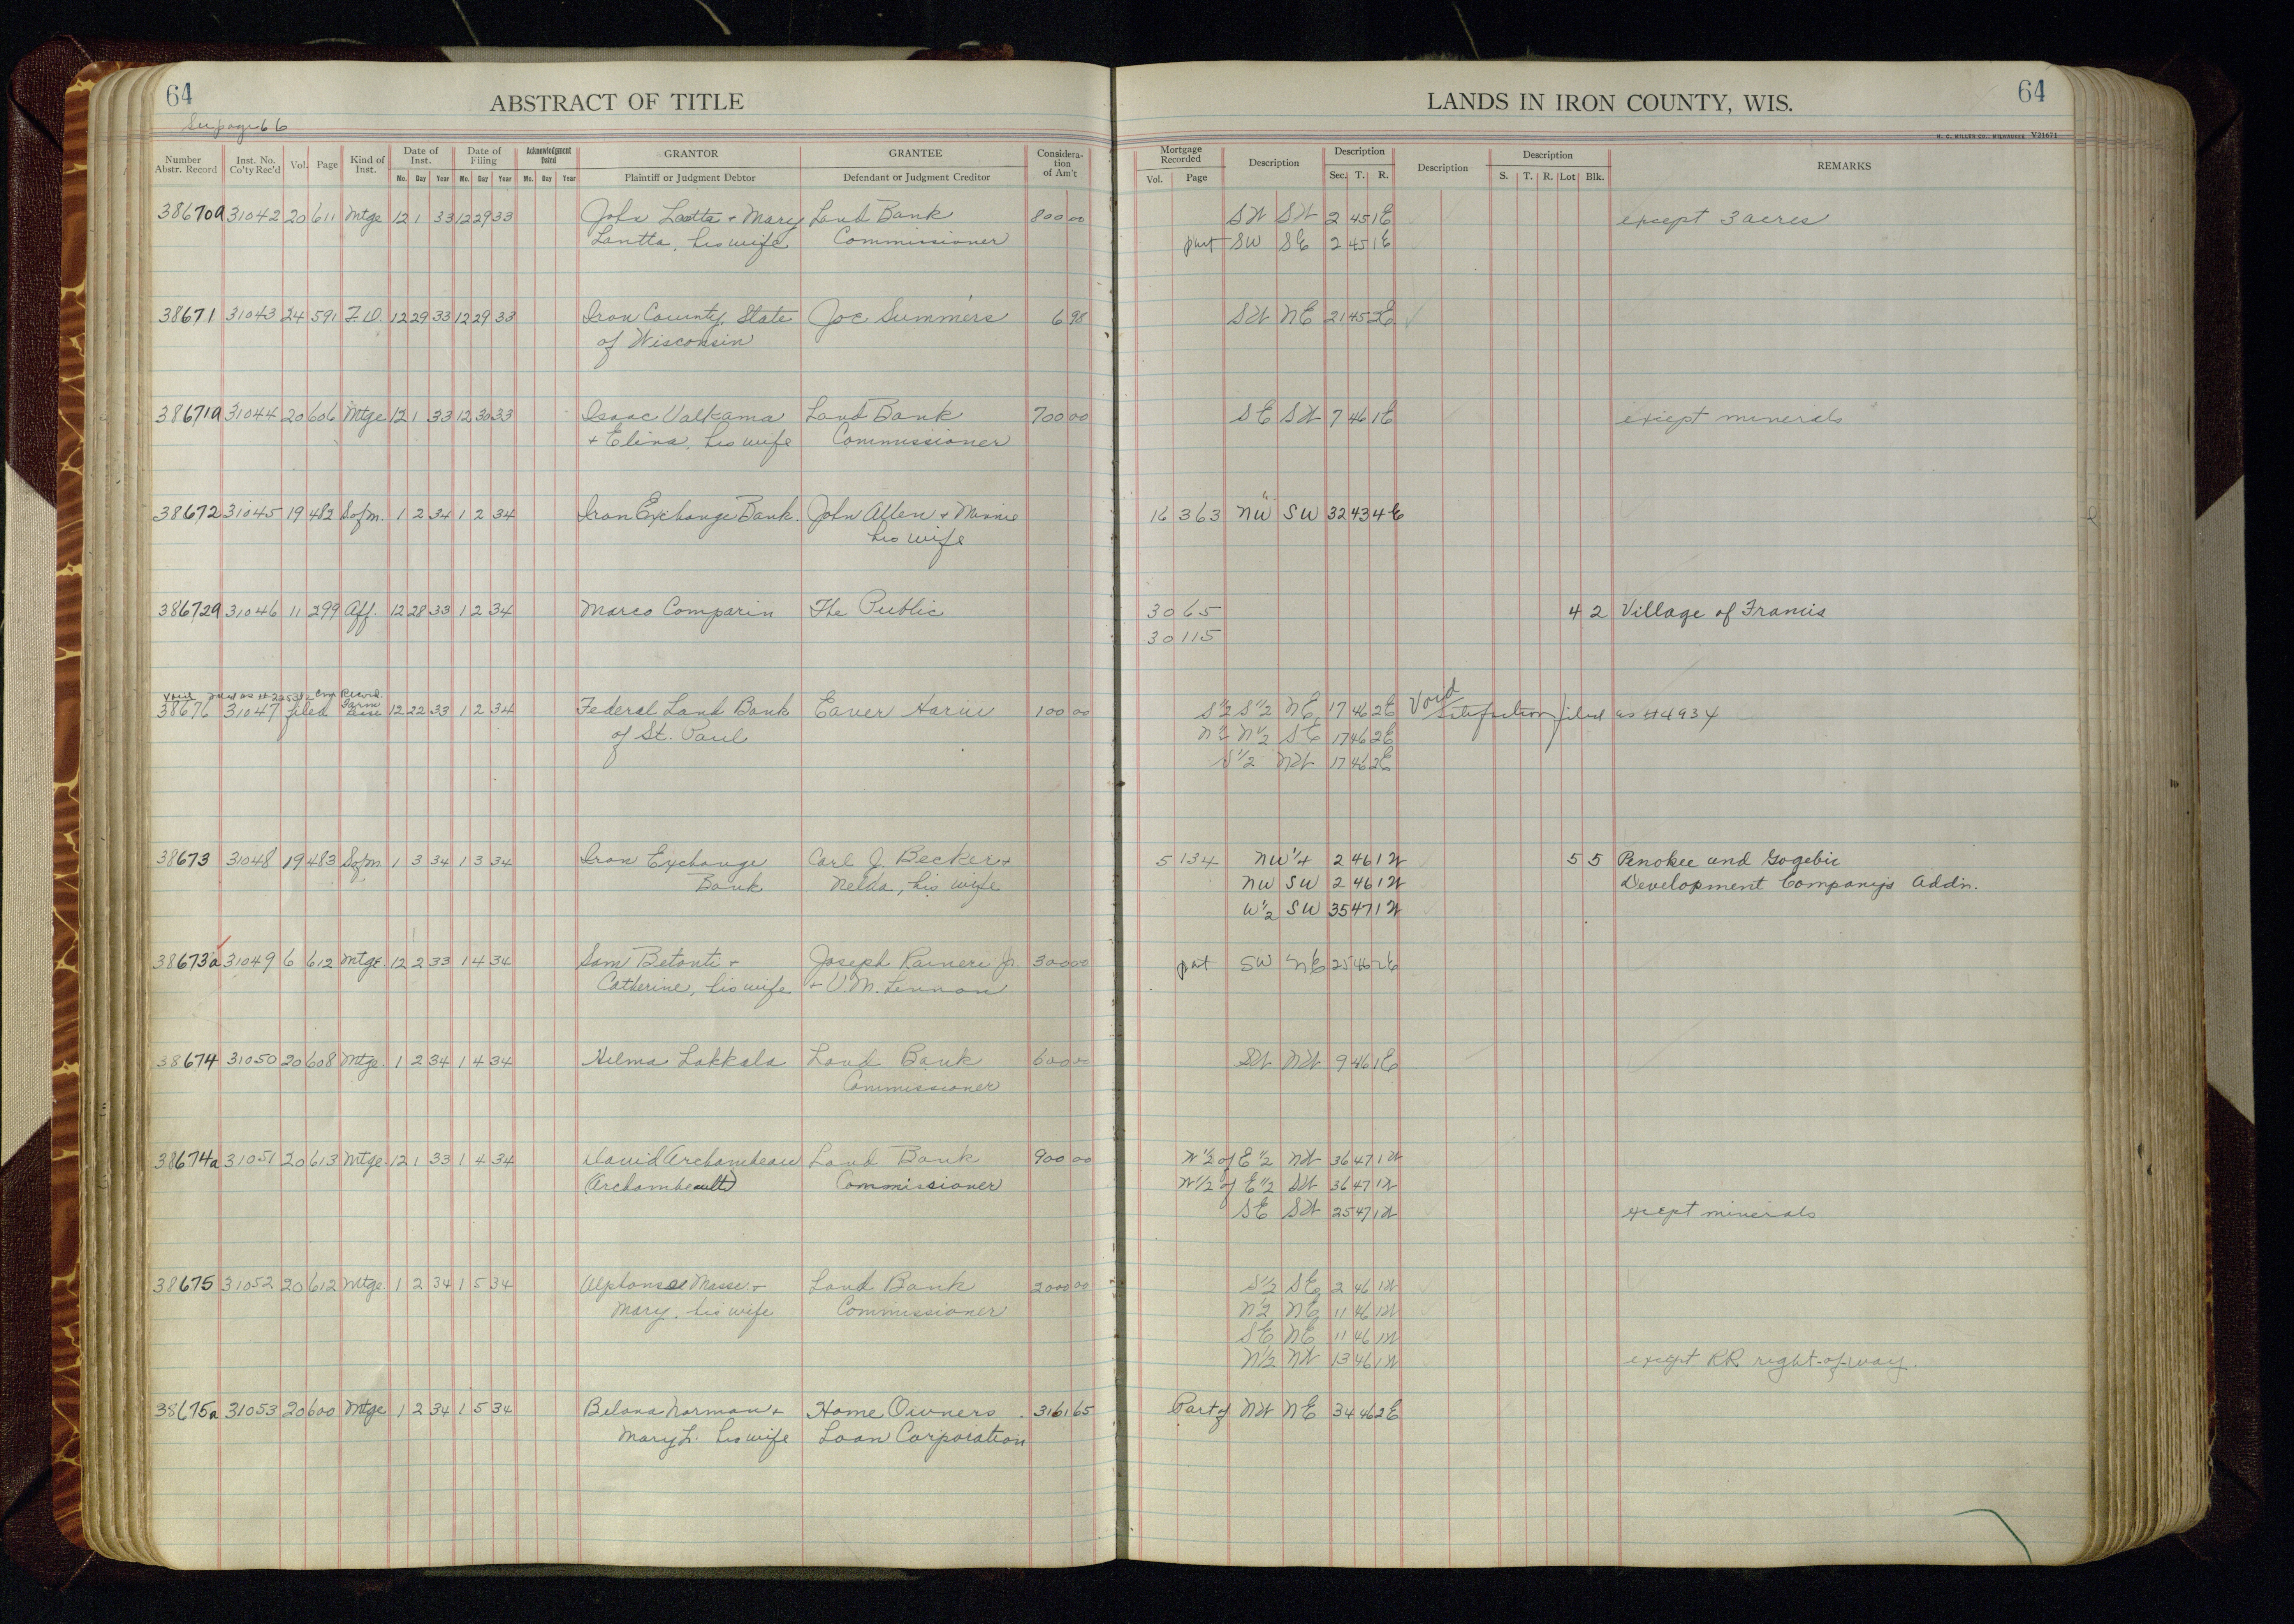 64
ABSTRACT OF TITLE
See page 66
Number Abstr. Record | Inst. No. Co'ty Rec'd | Vol. | Page | Kind of Inst. | Date of Inst. Mo. Day Year | Date of Filing Mo. Day Year | Acknowledgment Dated Mo. Day Year | GRANTOR Plaintiff or Judgment Debtor | GRANTEE Defendant or Judgment Creditor | Consideration of Am't
38670a 31042 20 611 Mtge 12 1 33 12 29 33 John Lantta + Mary Land Bank 800 00
Lantta, his wife Commissioner
38671 31043 24 591 T.D. 12 29 33 12 29 33 Iron County, State Joe Summers 6 98
of Wisconsin
38671a 31044 20 606 Mtge 12 1 33 12 30 33 Isaac Valkama Land Bank 700 00
+ Elina, his wife Commissioner
38672 31045 19 482 Sofm. 1 2 34 1 2 34 Iron Exchange Bank. John Allen + Minnie
his wife
38672a 31046 11 299 Aff. 12 28 33 1 2 34 Marco Comparin The Public
38676 31047 filed Farm Lease 12 22 33 1 2 34 Federal Land Bank Eaver Harju 100 00
of St. Paul
38673 31048 19 483 Sofm. 1 3 34 1 3 34 Iron Exchange Carl J. Becker +
Bank Nelda, his wife
38673a 31049 6 612 Mtge. 12 2 33 1 4 34 Sam Betonti + Joseph Raineri Jr. 300 00
Catherine, his wife + V.M. Lennon
38674 31050 20 608 Mtge. 1 2 34 1 4 34 Hilma Lakkala Land Bank 600 00
Commissioner
38674a 31051 20 613 Mtge. 12 1 33 1 4 34 David Archambeau Land Bank 900 00
(Archambeault) Commissioner
38675 31052 20 612 Mtge. 1 2 34 1 5 34 Alphonse Masse + Land Bank 2000 00
Mary, his wife Commissioner
38675a 31053 20 600 Mtge 1 2 34 1 5 34 Belana Norman + Home Owners 3161 65
Mary L. his wife Loan Corporation
LANDS IN IRON COUNTY, WIS.
64
H. C. MILLER CO., MILWAUKEE V21671
Mortgage Recorded Vol. Page | Description | Description Sec. T. R. | Description | Description S. T. R. Lot Blk. | REMARKS
SW SW 2 45 1E except 3 acres
part SW SE 2 45 1E
SW NE 21 45 2E
SE SW 7 46 1E except minerals
16 363 NW SW 32 43 4E
30 65 4 2 Village of Francis
30 115
S½ S½ NE 17 46 2E Void Satisfaction filed as #4934
N½ N½ SE 17 46 2E
S½ NW 17 46 2E
5 134 NW¼ 2 46 1W 5 5 Penokee and Gogebic
NW SW 2 46 1W Development Company's Addn.
W½ SW 35 47 1W
part SW NE 25 46 2E
SW NW 9 46 1E
W½ of E½ NW 36 47 1W
W½ of E½ SW 36 47 1W
SE SW 25 47 1W except minerals
S½ SE 2 46 1W
N½ NE 11 46 1W
SE NE 11 46 1W
N½ NW 13 46 1W except RR right-of-way.
Part of NW NE 34 46 2E